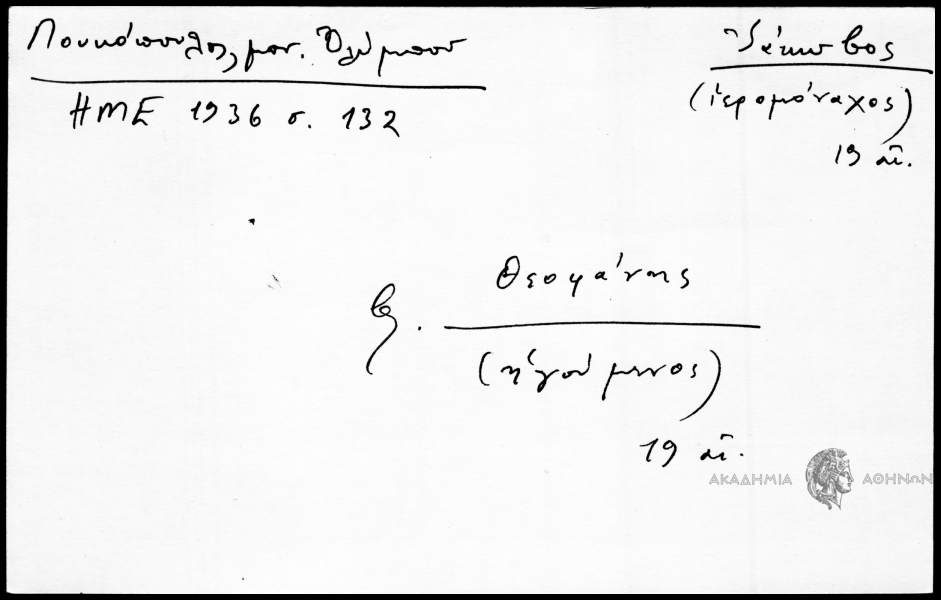 Λουκόπουλος, μον. Ὀλύμπου
ΗΜΕ 1936 σ. 132
Ἰάκωβος
(ἱερομόναχος)
19 αἰ.
βλ. Θεοφάνης
(ἡγούμενος)
19 αἰ.
ΑΚΑΔΗΜΙΑ ΑΘΗΝΩΝ